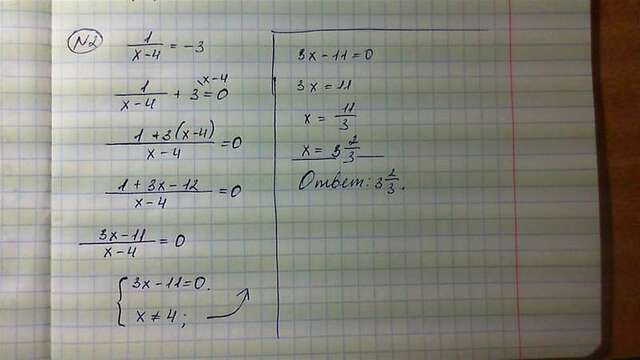 №2
1/(x-4) = -3
1/(x-4) + 3^(x-4) = 0
(1+3(x-4))/(x-4) = 0
(1+3x-12)/(x-4) = 0
(3x-11)/(x-4) = 0
{ 3x-11=0.
x ≠ 4;
3x-11=0
3x = 11
x = 11/3
x = 3 2/3
Ответ: 3 2/3.